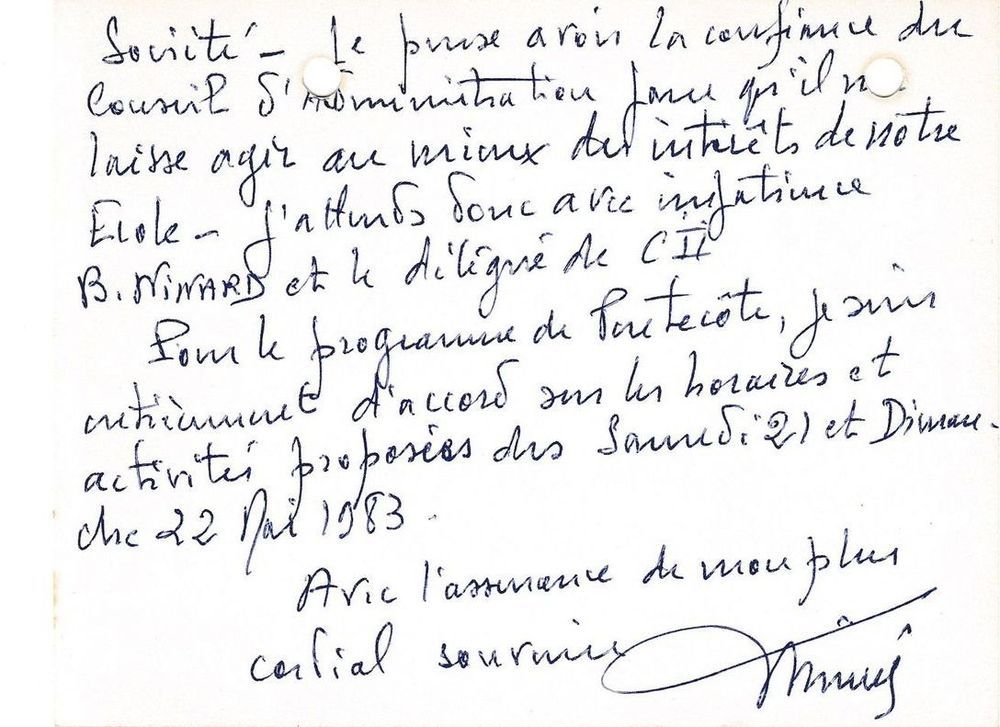 Société - Je pense avoir la confiance du
Conseil d'Administration pour qu'il me
laisse agir au mieux des intérêts de notre
Ecole - J'attends donc avec impatience
B. NINARD et le délégué de CII
Pour le programme de Pentecôte, je suis
entièrement d'accord sur les horaires et
activités proposées des Samedi 21 et Diman-
che 22 Mai 1983.
Avec l'assurance de mon plus
cordial souvenir